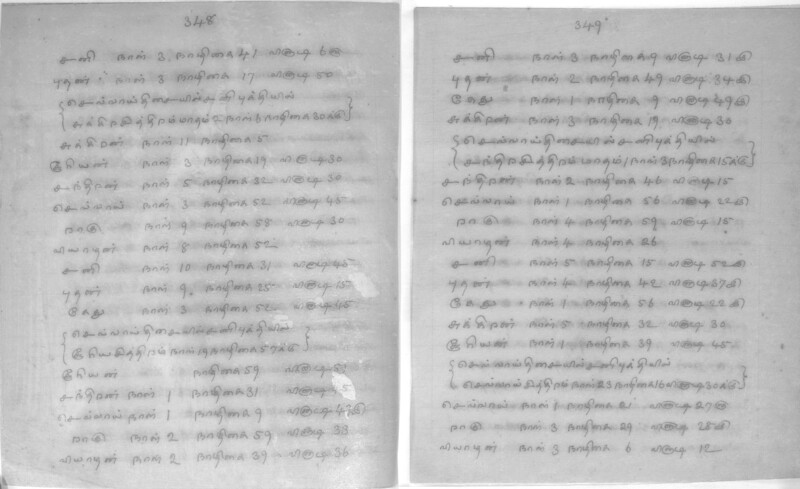 348
சனி நாள் 3 நாழிகை 41 விகுடி
புதன் நாள் 3 நாழிகை 17 விகுடி 50
{செவ்வாய்திசையில் சனிபுத்தியில்
{சுக்கிரசித்திரம் மாதம் நாள் 3 நாழிகை 30 }
சுக்கிரன் நாள் 11 நாழிகை 5
நாள் 3 நாழிகை 19 விகுடி 30
சந்திரன் நாள் 5 நாழிகை 32 விகுடி 30
செவ்வாய் நாள் 3 நாழிகை 52 விகுடி 45
ராகு நாள் 9 நாழிகை 58 விகுடி 30
வியாழன் நாள் 8 நாழிகை 52
சனி நாள் 10 நாழிகை 31 விகுடி 45
புதன் நாள் 9 நாழிகை 25 விகுடி 15
கேது நாள் 3 நாழிகை 52 விகுடி 45
{செவ்வாய்திசையில் சனிபுத்தியில்
நாள் நாழிகை 57 }
நாழிகை 59 விகுடி
சந்திரன் நாள் 1 நாழிகை 31 விகுடி
செவ்வாய் நாள் 1 நாழிகை 9 விகுடி
ராகு நாள் 2 நாழிகை 59 விகுடி 33
வியாழன் நாள் 2 நாழிகை 39 விகுடி 36
349
சனி நாள் 3 நாழிகை 9 விகுடி 31
புதன் நாள் 2 நாழிகை 49 விகுடி 34
கேது நாள் 1 நாழிகை 9 விகுடி 49
சுக்கிரன் நாள் 3 நாழிகை 19 விகுடி 30
{செவ்வாய்திசையில் சனிபுத்தியில்
{சந்திரசித்திரம் மாதம் 1 நாள் 3 நாழிகை 15 }
சந்திரன் நாள் 2 நாழிகை 46 விகுடி 15
செவ்வாய் நாள் 1 நாழிகை 56 விகுடி 22
ராகு நாள் 4 நாழிகை 59 விகுடி 15
வியாழன் நாள் 4 நாழிகை 26
சனி நாள் 5 நாழிகை 15 விகுடி 52
புதன் நாள் 4 நாழிகை 42 விகுடி 37
கேது நாள் 1 நாழிகை 56 விகுடி 22
சுக்கிரன் நாள் 5 நாழிகை 32 விகுடி 30
நாள் 1 நாழிகை 39 விகுடி 45
{செவ்வாய்திசையில் சனிபுத்தியில்
செவ்வாய்சித்திரம் நாள் 23 நாழிகை 16 விகுடி 30 }
செவ்வாய் நாள் 1 நாழிகை 21 விகுடி 27
ராகு நாள் 3 நாழிகை 29 விகுடி 28
வியாழன் நாள் 3 நாழிகை 6 விகுடி 12